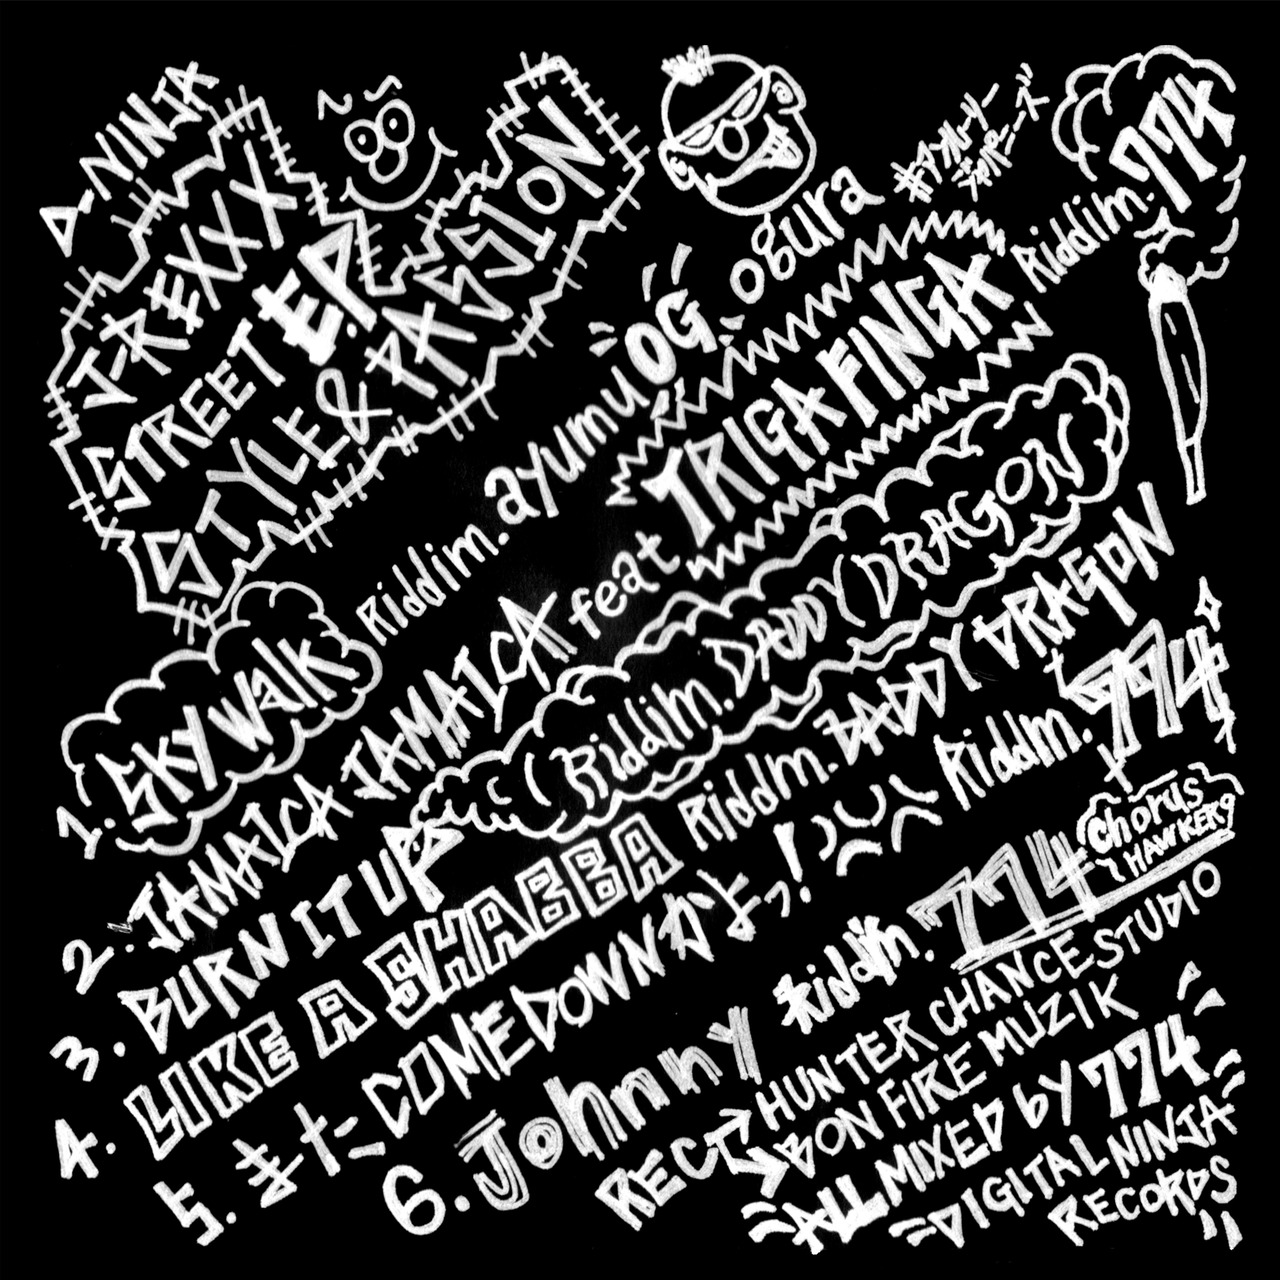 D-NINJA
J-REXXX
STREET E.P
STYLE & PASSION
ogura
#アフルーリー
Riddim. 774
1. SKY WALK Riddim. ayumu OG
2. JAMAICA JAMAICA feat TRIGA FINGA
3. BURN IT UP (Riddim. DADDY DRAGON)
4. LIKE A SHABBA Riddm. DADDY DRAGON
5. また COMEDOWNかよっ! Riddm. 774
6. Johnny Riddim. 774 chorus HAWKER9
REC → HUNTER CHANCE STUDIO
→ BON FIRE MUZIK
ALL MIXED by 774
DIGITAL NINJA
RECORDS